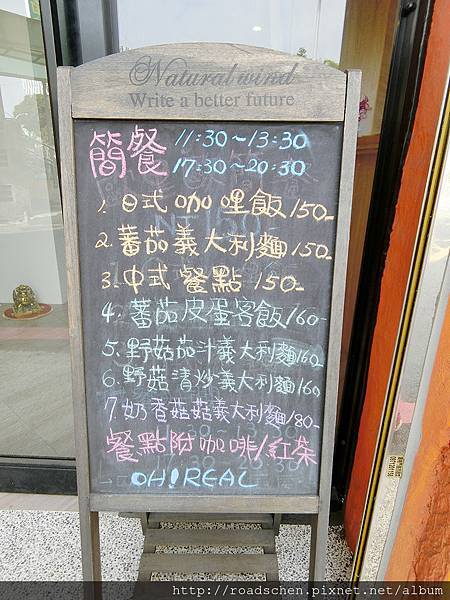 Natural wind
Write a better future
簡餐 11:30～13:30
17:30～20:30
1. 日式咖哩飯 150-
2. 蕃茄義大利麵 150-
3. 中式餐點 150-
4. 蕃茄皮蛋客飯 160-
5. 野菇茄汁義大利麵 160
6. 野菇清炒義大利麵 160
7 奶香菇菇義大利麵 180-
餐點附咖啡/紅茶
OH!REAL
http://roadschen.pixnet.net/album